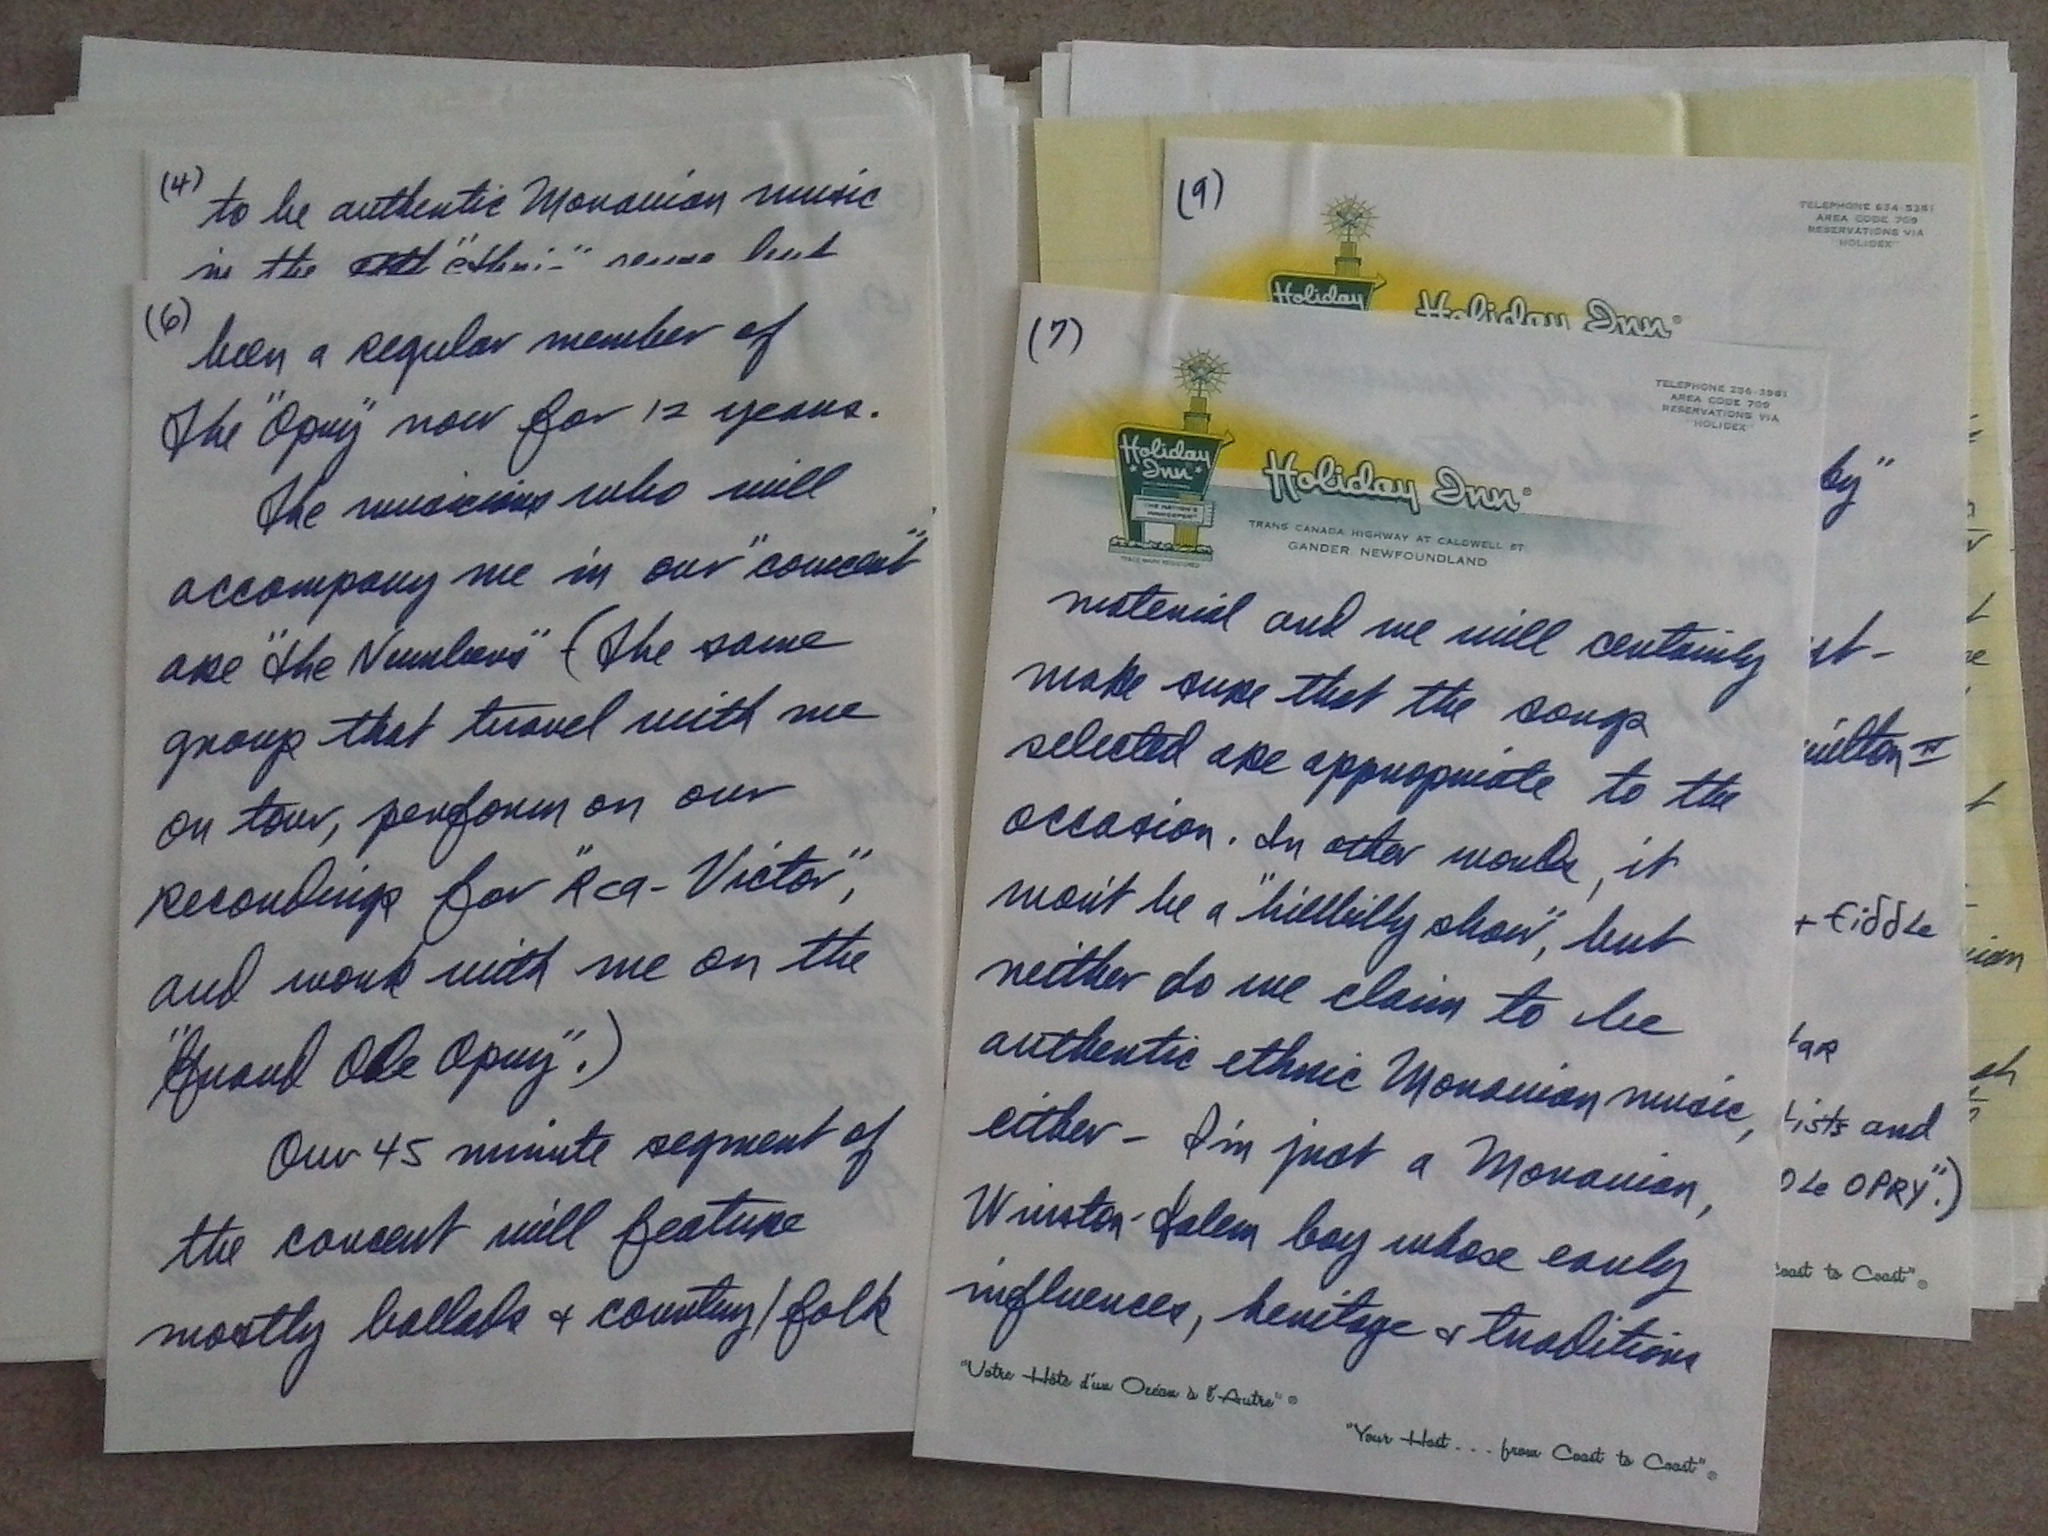 (4)
to be authentic Moravian music
in the "ethnic" sense but
(6)
been a regular member of
the "Opry" now for 12 years.
The musicians who will
accompany me in our "concert"
are "the Numbers" (the same
group that travel with me
on tour, perform on our
recordings for "Rca-Victor",
and work with me on the
"Grand Ole Opry".)
Our 45 minute segment of
the concert will feature
mostly ballads + country/folk
(9)
TELEPHONE 634-5381
AREA CODE 709
RESERVATIONS VIA
"HOLIDEX"
Holiday
Holiday Inn®
by"
st-
milton IV
+ fiddle
ists and
Ole OPRY".)
Coast to Coast"®
(7)
TELEPHONE 256-3981
AREA CODE 709
RESERVATIONS VIA
"HOLIDEX"
Holiday
Inn
"THE NATION'S
INNKEEPER"
TRADE MARK REGISTERED
Holiday Inn®
TRANS CANADA HIGHWAY AT CALDWELL ST
GANDER NEWFOUNDLAND
material and we will certainly
make sure that the songs
selected are appropriate to the
occasion. In other words, it
won't be a "hillbilly show", but
neither do we claim to be
authentic ethnic Moravian music,
either - I'm just a Moravian,
Winston-Salem boy whose early
influences, heritage + traditions
"Votre Hôte d'un Océan à l'Autre"®
"Your Host . . . from Coast to Coast"®